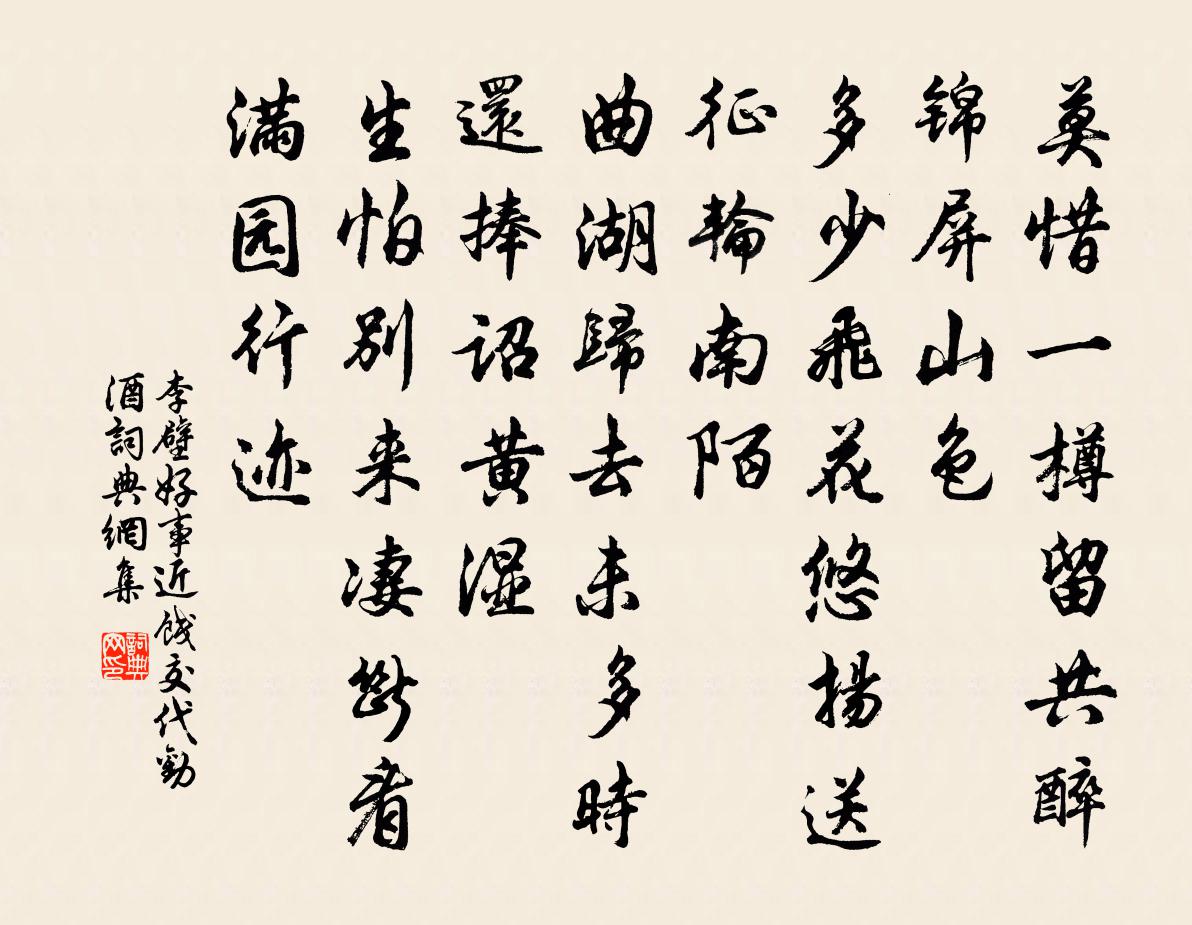 莫惜一樽留共醉
锦屏山色
多少飛花悠揚送
征輪南陌
曲湖歸去未多時
還捧詔黄湿
生怕别来凄断看
满园行迹
李壁好事近餞交代勸
酒詞典網集
詞典网印